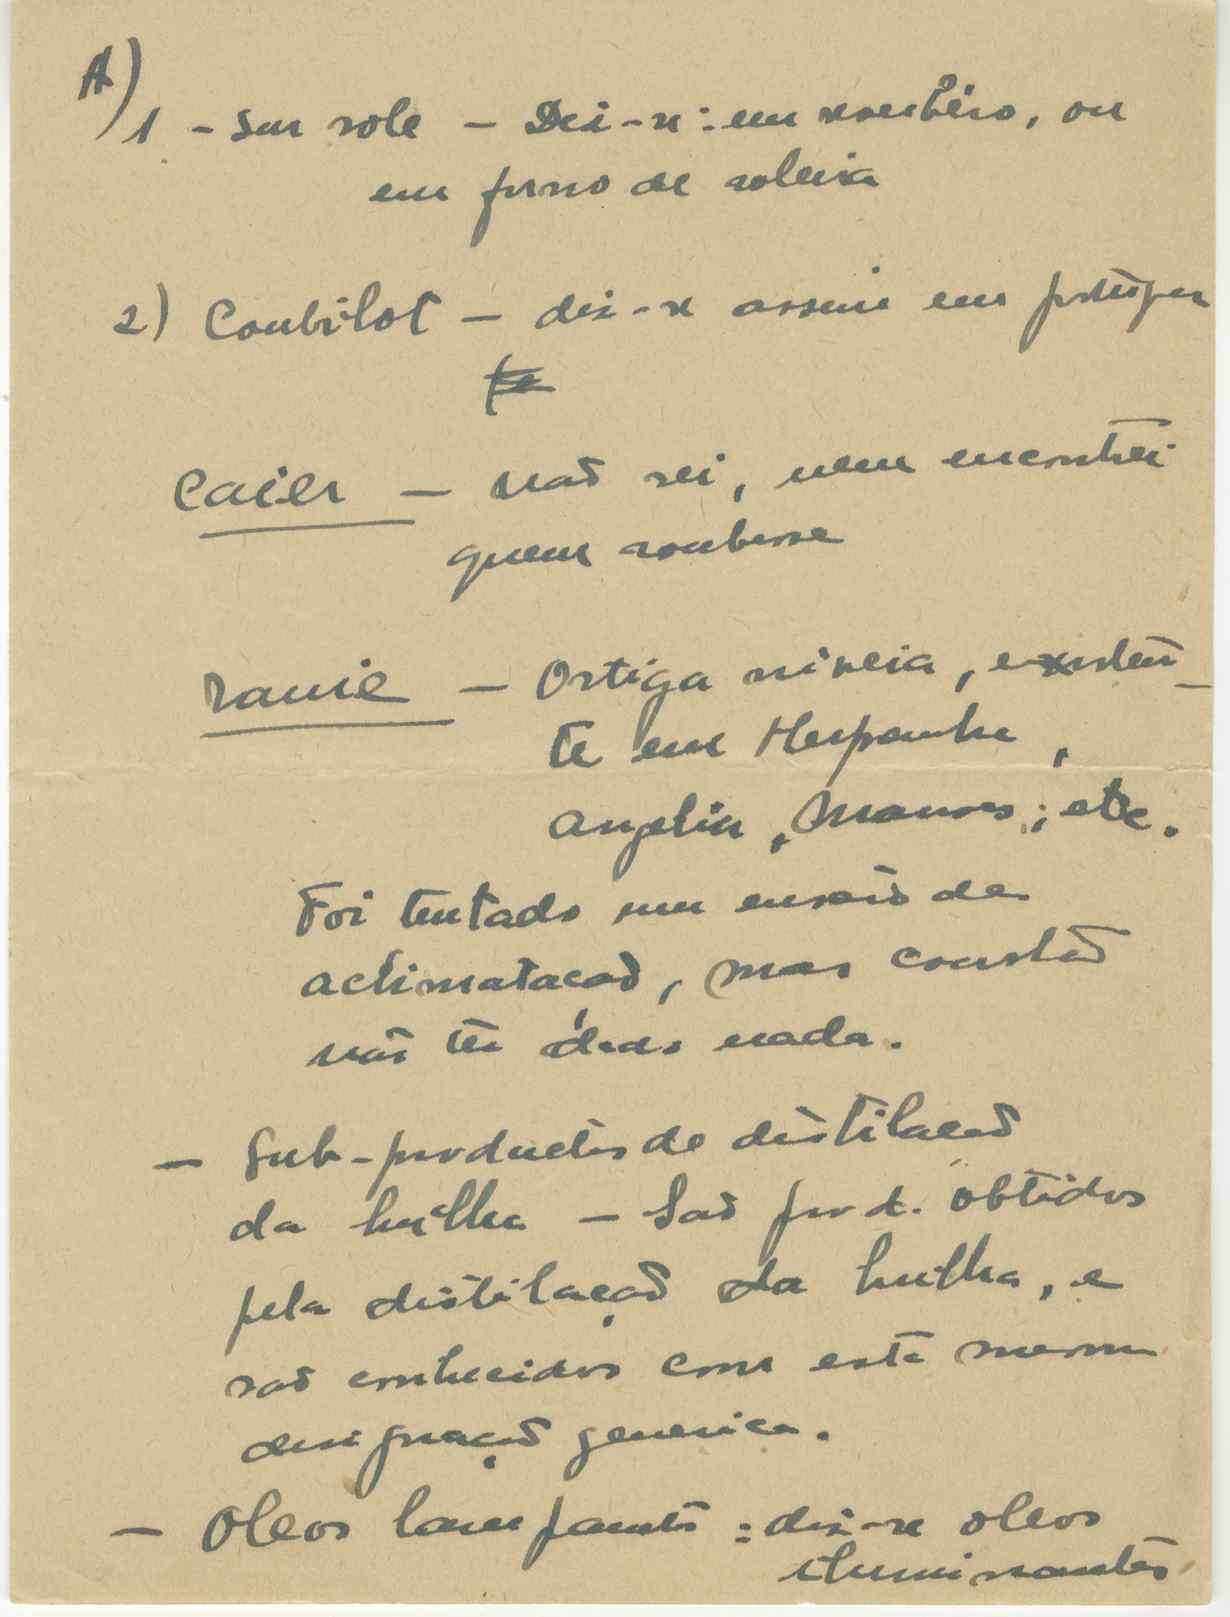 A)
1 - Sur sole - Diz-se: em
, ou
em forno de soleira
2) Coubilot - diz-se assim em portugues
Caïer - não sei, nem encontrei
quem soubesse
ramie - Ortiga niveia, existen-
te em Hespanha,
Argelia, Manaos, etc.
Foi tentado um ensaio de
aclimatação, mas consta
não ter dado nada.
- Sub-productos de distilação
da hulha - São prod. obtidos
pela distilação da hulha, e
são conhecidos com esta mesma
designação generica.
- Oleos lampantes: diz-se oleos
iluminantes